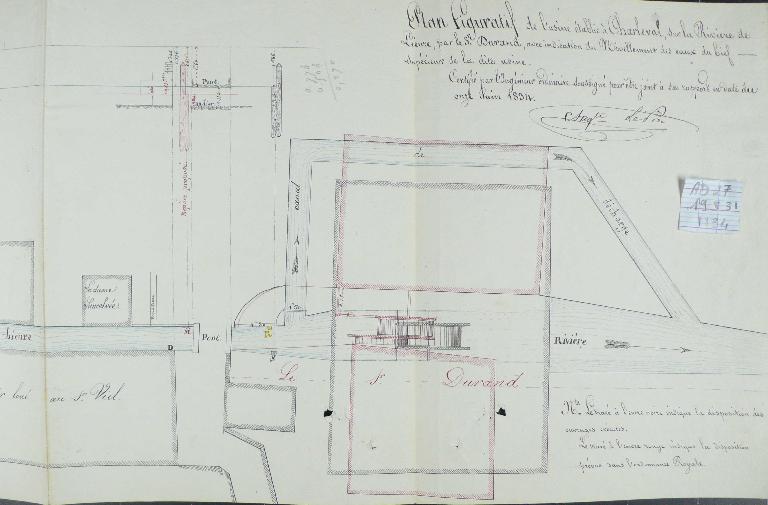 Plan Figuratif de l'usine établie à Charleval, sur la Rivière de
Lieure, par le Sr. Durand, avec indication du Nivellement des eaux du bief
supérieur de la dite usine.
Certifié par l'Ingénieur Ordinaire Soussigné pour être joint à son rapport en date du
onze Juin 1834.
AD 27
19 S 31
1134
Pont
Radier
Repère provisoire
canal
de
décharge
La dame
Lieure
M
D
Pont
Rivière
Le Sr Durand
loué au Sr Viel
Nta. Le tracé à l'encre noire indique la disposition des
ouvrages exécutés.
Le tracé à l'encre rouge indique la disposition
prévue dans l'ordonnance Royale.